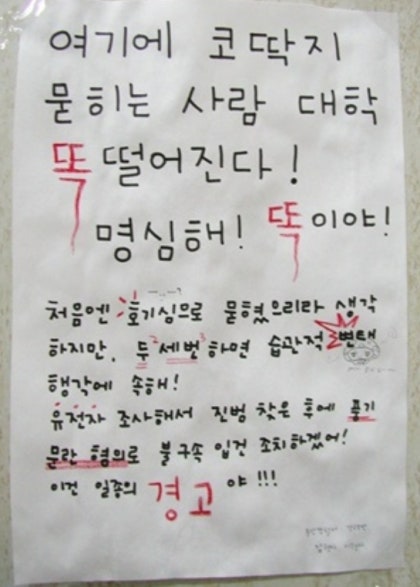 여기에 코딱지
묻히는 사람 대학
똑 떨어진다!
명심해! 똑이야!
처음엔 호기심므로 묻혔으리라 생각
하지만, 두세번하면 습관적 변태
행각에 속해!
유전자 조사해서 진범 찾은 후에 풍기
문란 혐의로 불구속 입건 조치하겠어!
이건 일종의 경고야!!!